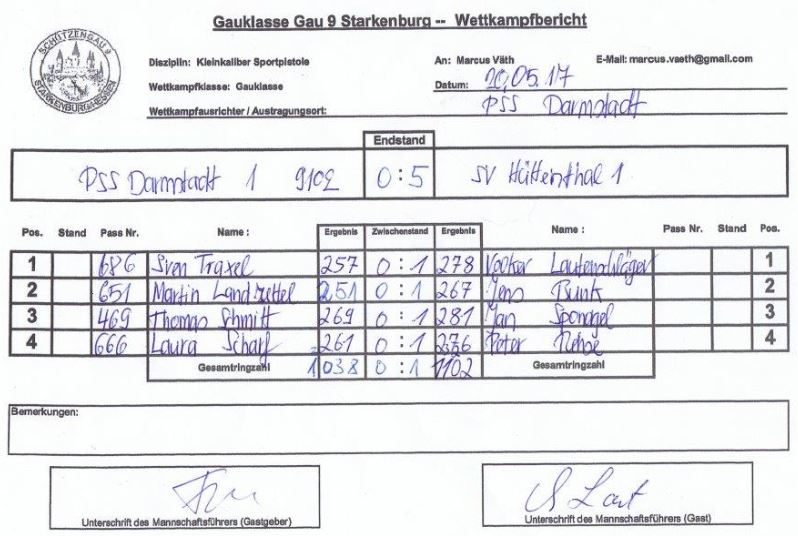 Gauklasse Gau 9 Starkenburg -- Wettkampfbericht
SCHÜTZENGAU 9
STARKENBURG/HESSEN
Disziplin: Kleinkaliber Sportpistole An: Marcus Väth E-Mail: marcus.vaeth@gmail.com
Wettkampfklasse: Gauklasse Datum: 20.05.17
Wettkampfausrichter / Austragungsort: PSS Darmstadt
Endstand
PSS Darmstadt 1 9102 0:5 SV Hüttenthal 1
Pos. Stand Pass Nr. Name : Ergebnis Zwischenstand Ergebnis Name : Pass Nr. Stand Pos.
1 686 Sven Traxel 257 0:1 278 Volker Lautenschläger 1
2 651 Martin Landzettel 251 0:1 267 Jens Bunk 2
3 469 Thomas Schmitt 269 0:1 281 Jan Sponagel 3
4 666 Laura Scharf 261 0:1 276 Peter 4
Gesamtringzahl 1038 0:1 1102 Gesamtringzahl
Bemerkungen:
Unterschrift des Mannschaftsführers (Gastgeber) Unterschrift des Mannschaftsführers (Gast)